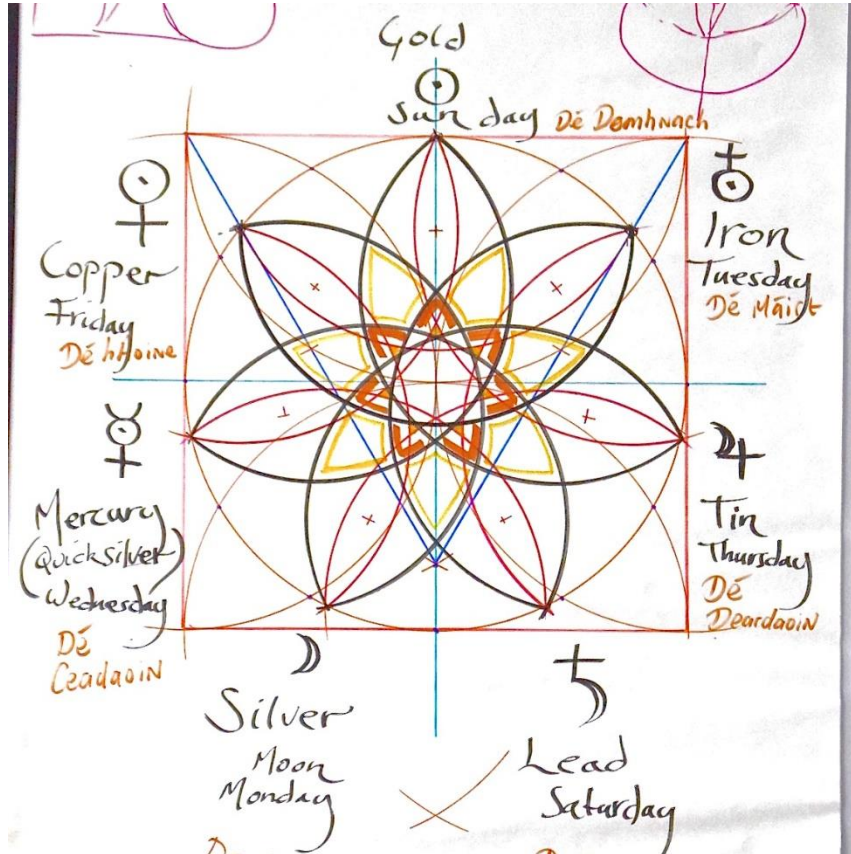 Gold
Sunday Dé Domhnach
Copper
Friday
Dé hAoine
Iron
Tuesday
Dé Máirt
Mercury
(Quicksilver)
Wednesday
Dé
Céadaoin
Tin
Thursday
Dé
Deardaoin
Silver
Moon
Monday
Lead
Saturday